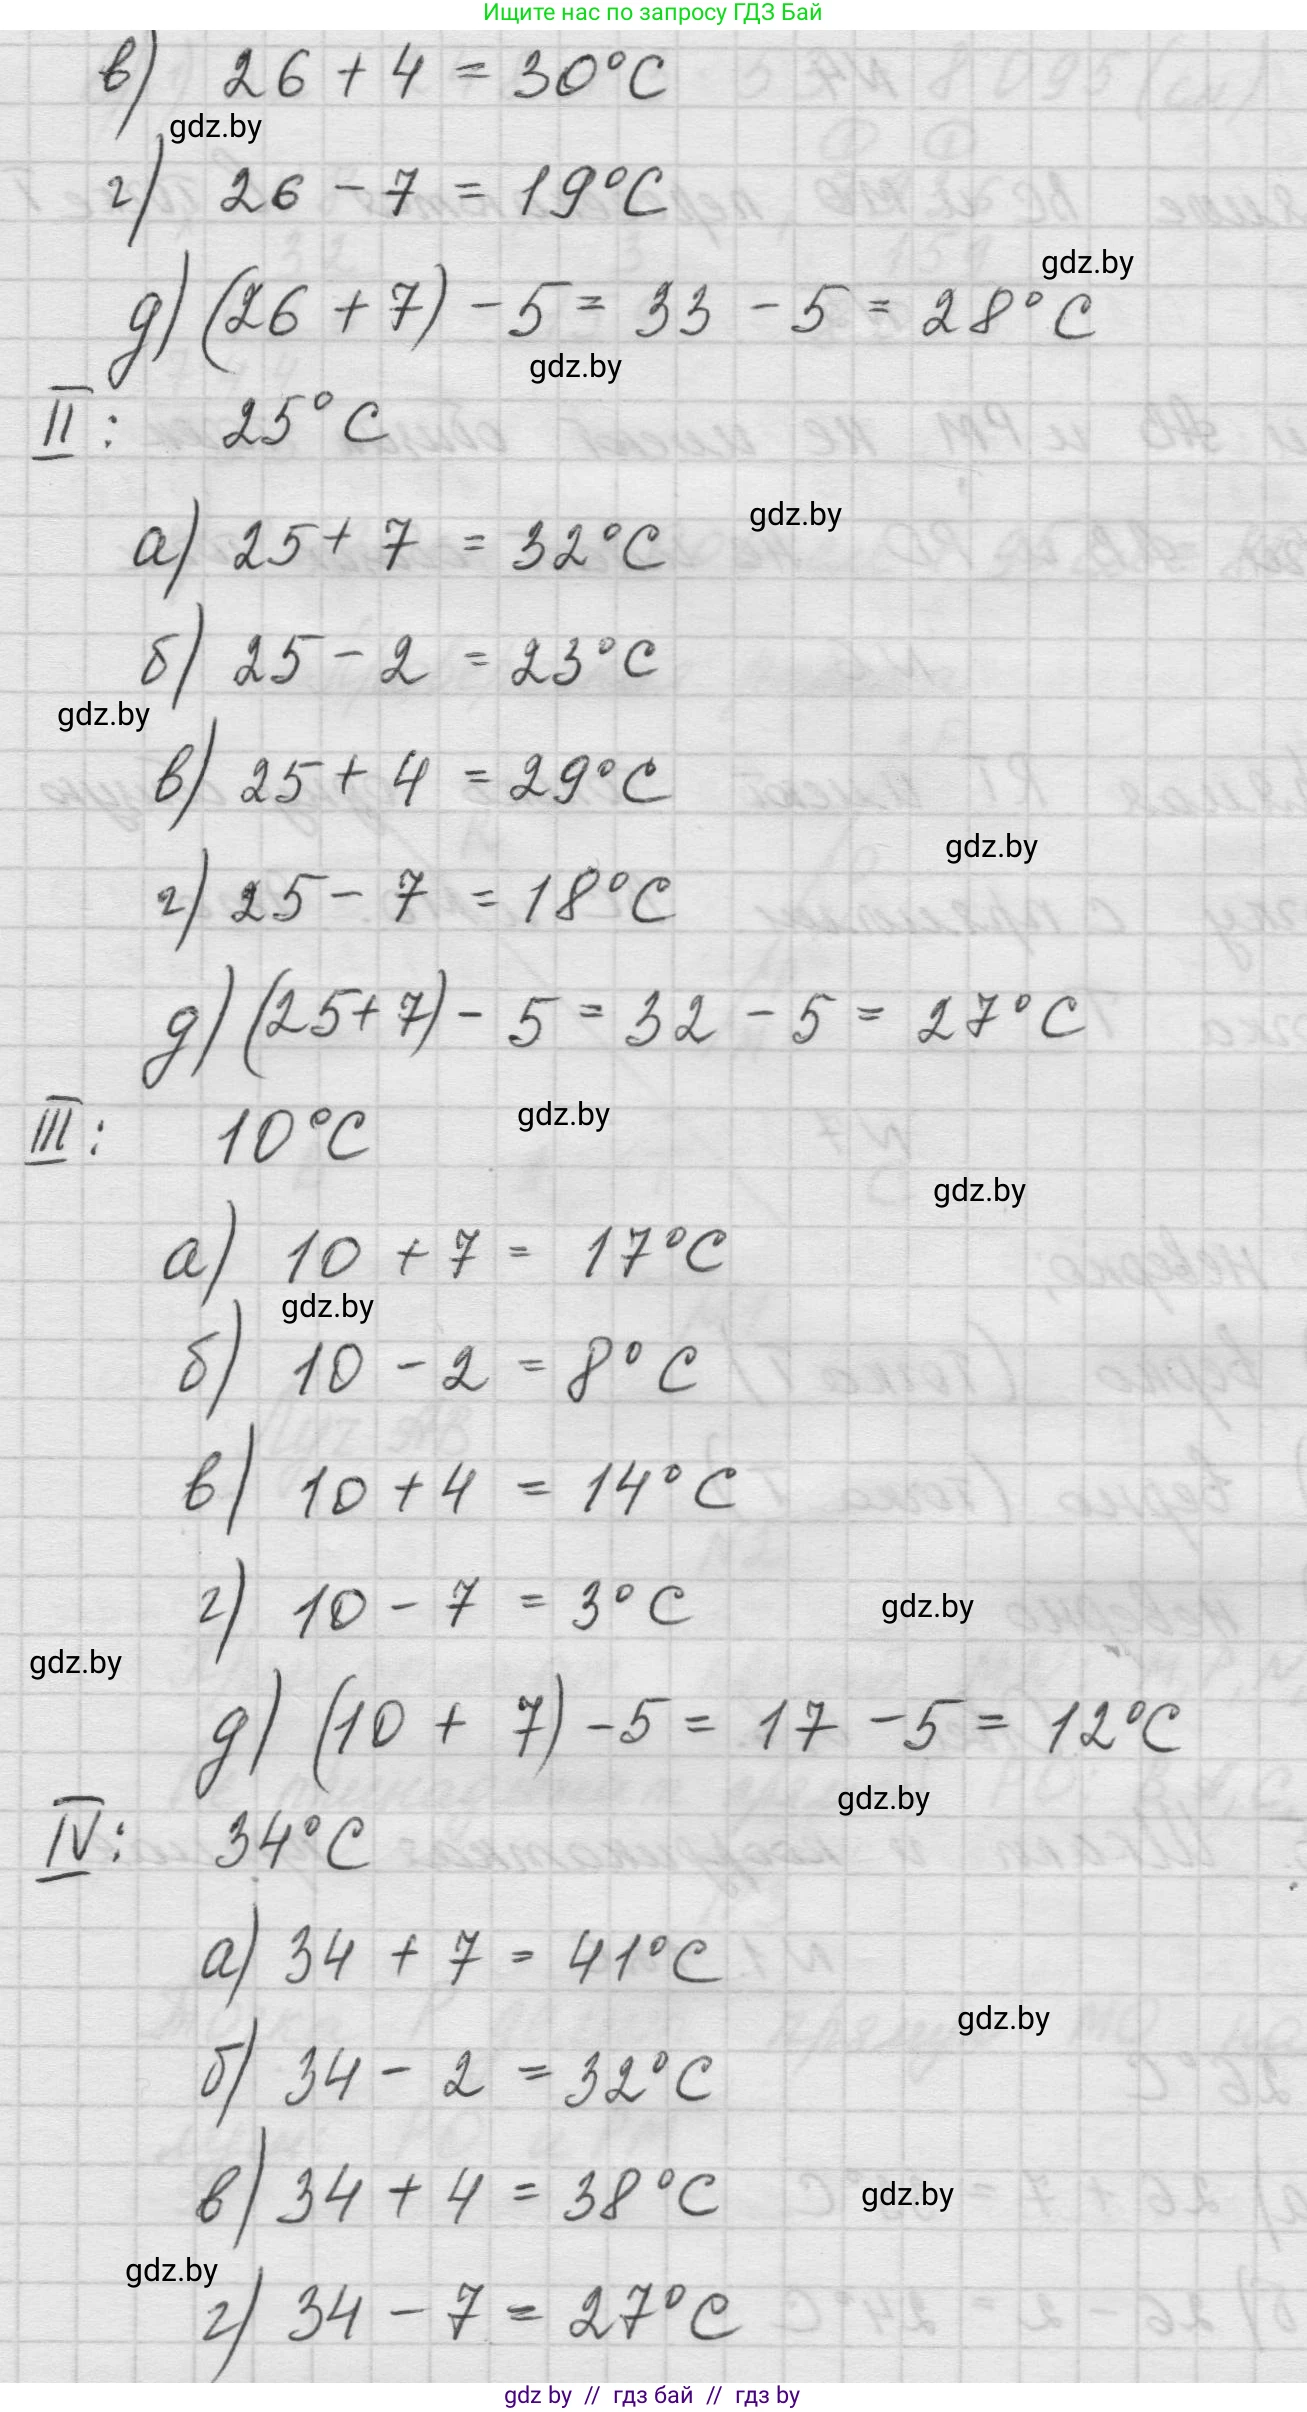 Ищите нас по запросу ГДЗ Бай
в) 26 + 4 = 30°C
gdz.by
г) 26 - 7 = 19°C
gdz.by
д) (26 + 7) - 5 = 33 - 5 = 28°C
gdz.by
II: 25°C
gdz.by
а) 25 + 7 = 32°C
б) 25 - 2 = 23°C
gdz.by
в) 25 + 4 = 29°C
gdz.by
г) 25 - 7 = 18°C
д) (25 + 7) - 5 = 32 - 5 = 27°C
III: 10°C
gdz.by
gdz.by
а) 10 + 7 = 17°C
gdz.by
б) 10 - 2 = 8°C
в) 10 + 4 = 14°C
г) 10 - 7 = 3°C
gdz.by
gdz.by
д) (10 + 7) - 5 = 17 - 5 = 12°C
gdz.by
IV: 34°C
а) 34 + 7 = 41°C
gdz.by
б) 34 - 2 = 32°C
в) 34 + 4 = 38°C
gdz.by
gdz.by
г) 34 - 7 = 27°C
gdz by // гдз бай // гдз by